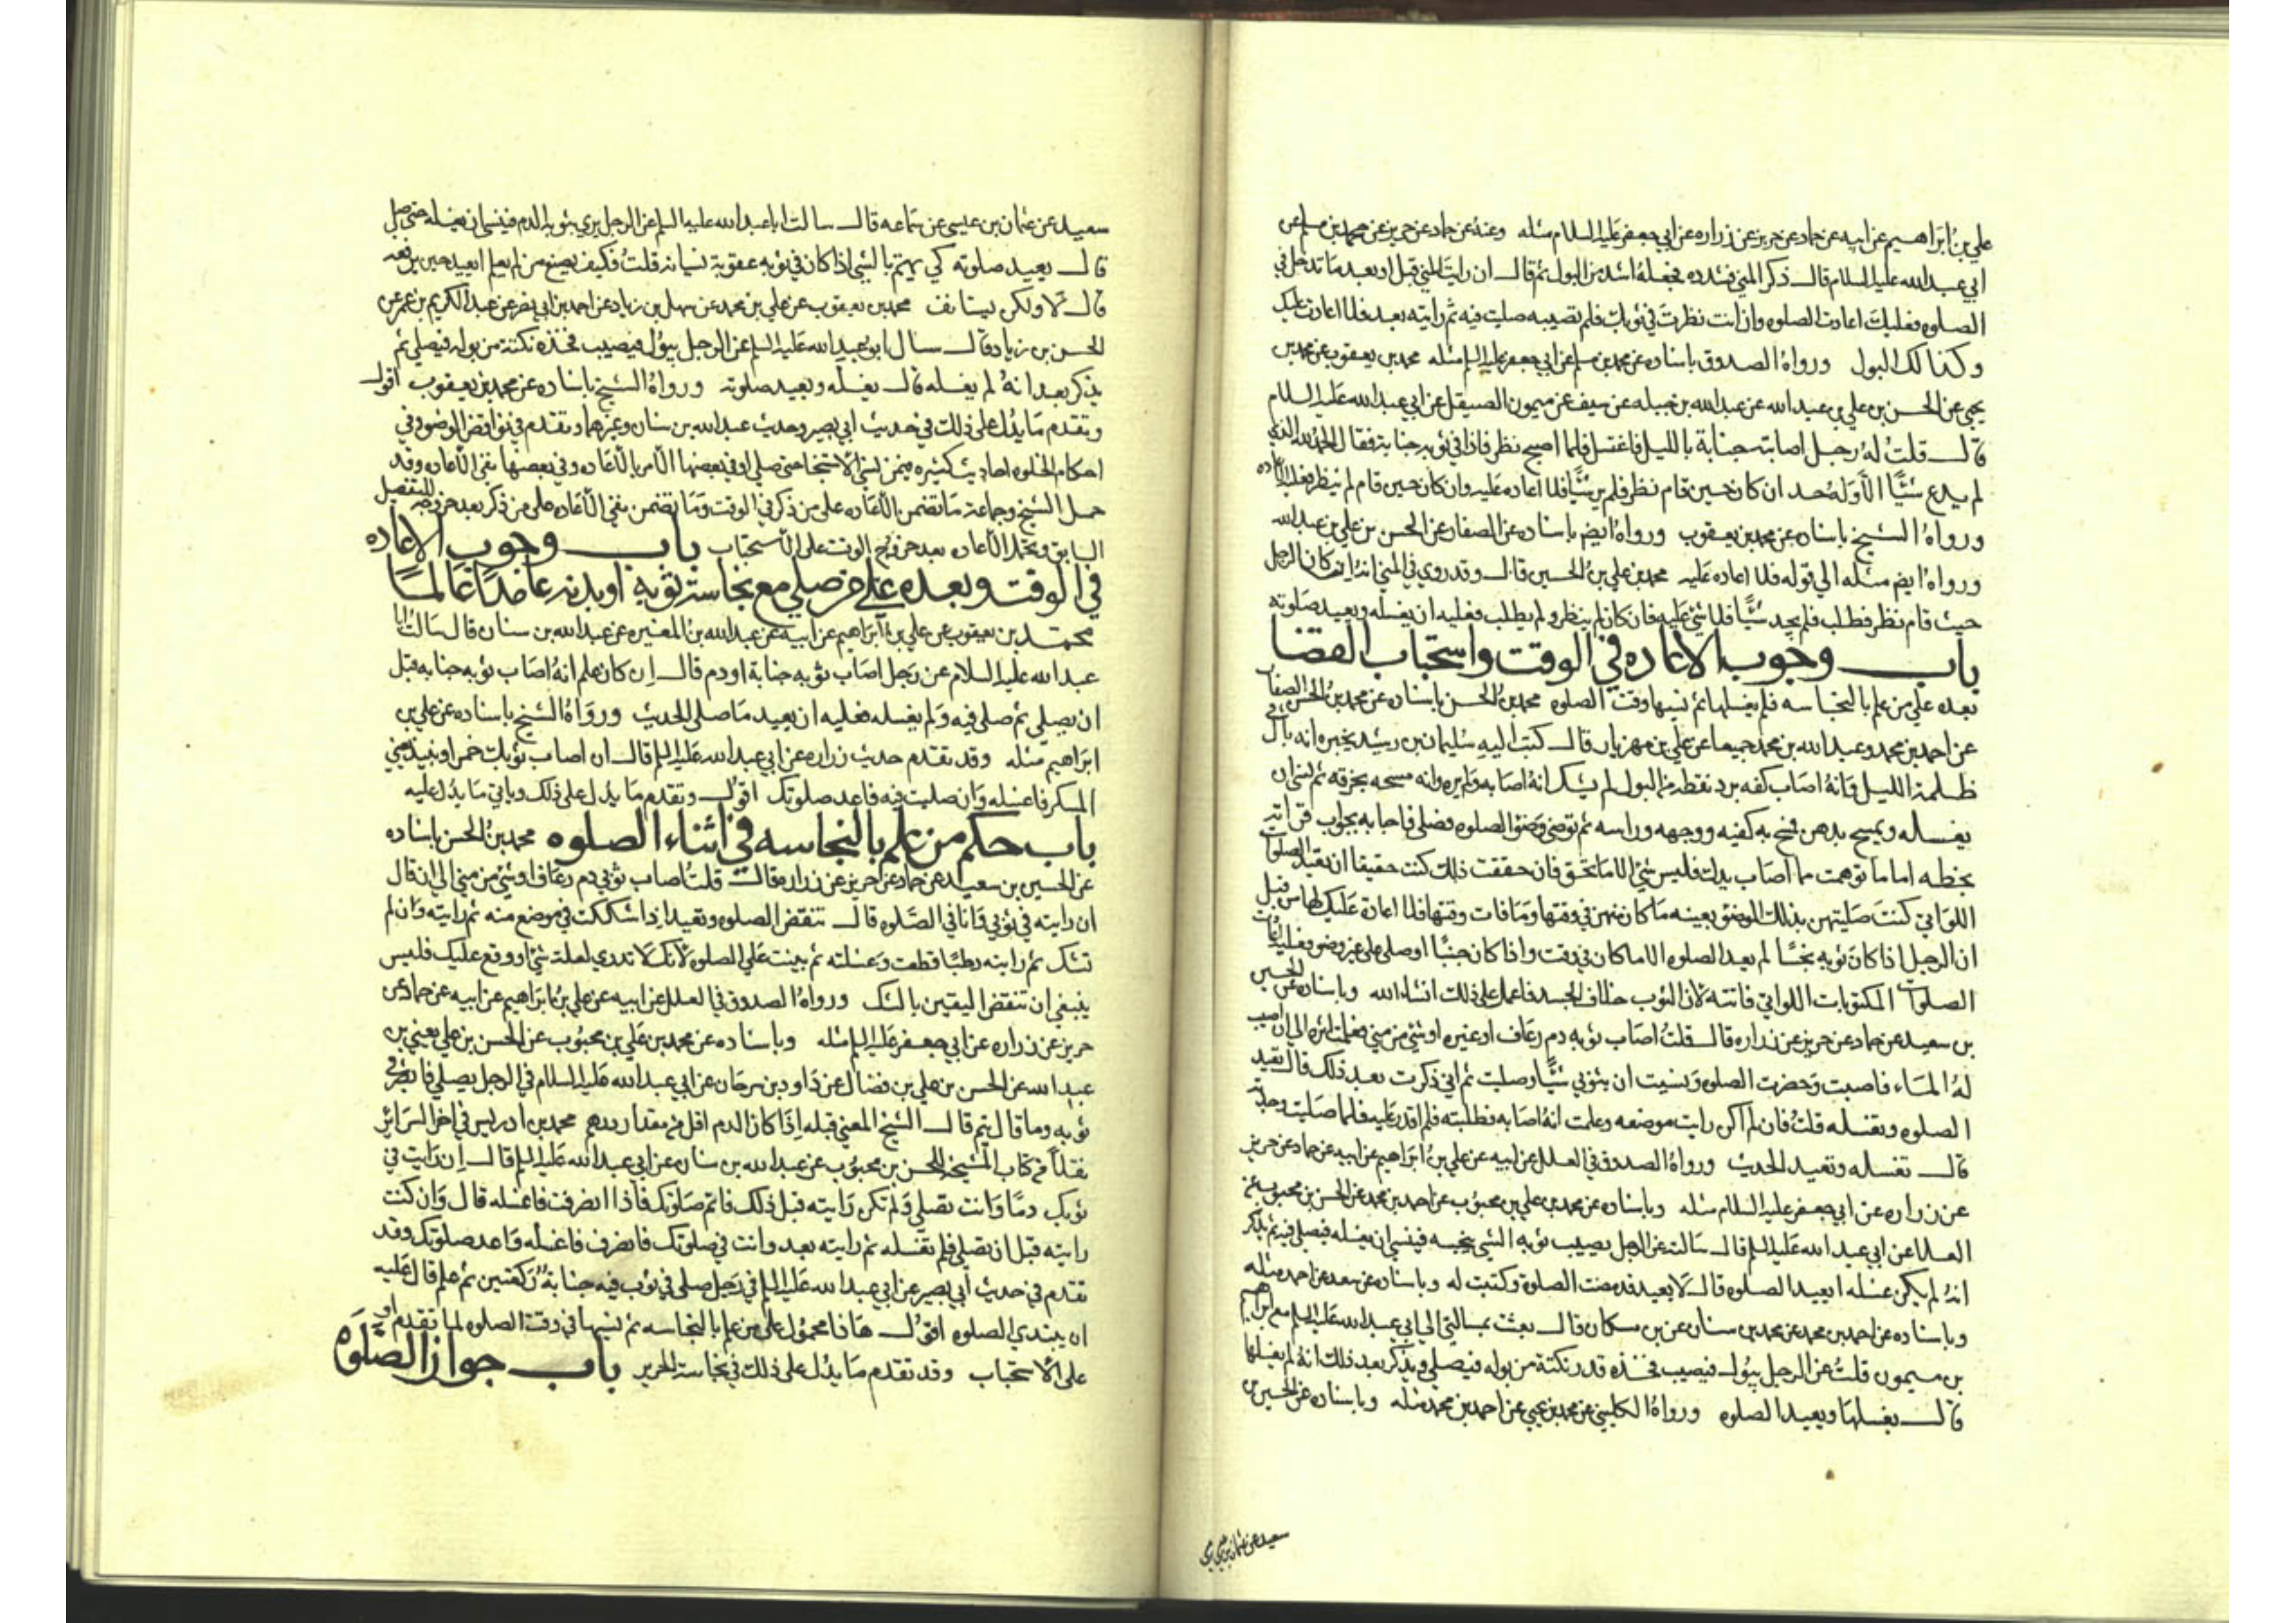 علي بن ابراهيم عن ابيه عن حماد عن حريز عن زراره عن ابي جعفر عليه السلام مثله وعنه عن حماد عن حريز عن محمد بن مسلم عن
ابي عبد الله عليه السلام قال ذكر المني فشدده فجعله اشد من البول ثم قال ان رايت المني قبل او بعد ما تدخل في
الصلوه فعليك اعادت الصلوه وان انت نظرت في ثوبك فلم تصبه صليت فيه ثم رايته بعد فلا اعادت عليك
وكذالك البول ورواه الصدوق باسناده عن محمد بن مسلم عن ابي جعفر عليه السلم مثله محمد بن يعقوب عن محمد بن
يحيى عن الحسن بن علي بن عبد الله عن عبد الله بن جبله عن سيف عن ميمون الصيقل عن ابي عبد الله عليه السلام
قال قلت له رجل اصابته جنابة بالليل فاغتسل فلما اصبح نظر فاذا في ثوبه جنابة فقال الحمد لله الذي
لم يدع شئًا الا وله حد ان كان حين قام نظر فلم ير شئًا فلا اعاده عليه وان كان حين قام لم ينظر فعليه الاعاده
ورواه الشيخ باسناده عن محمد بن يعقوب ورواه ايضم باسناده عن الصفار عن الحسن بن علي بن عبد الله
ورواه ايضم مثله الي قوله فلا اعاده عليه محمد بن علي بن الحسين قال وقد روي في المني انه ان كان الرجل
حيث قام نظر فطلب فلم يجد شئًا فلا شئ عليه فان كان لم ينظر ولم يطلب فعليه ان يغسله ويعيد صلوته
باب وجوب الاعاده في الوقت واستحباب القضا
بعده علي من علم بالنجاسه فلم يغسلها ثم نسيها وقت الصلوه محمد بن الحسن باسناده عن محمد بن الحسن الصفار
عن احمد بن محمد وعبد الله بن محمد جميعا عن علي بن مهزيار قال كتب اليه سليمان بن رشيد يخبره انه بال في
ظلمة الليل وانه اصاب كفه برد نقطه من البول لم يشك انه اصابه ولم يره وانه مسحه بخرقه ثم نسي ان
يغسله وتمسح بدهن فمسح به كفيه ووجهه وراسه ثم توضي وضؤ الصلوه فصلي فاجابه بجواب قراته
بخطه اما ما توهمت مما اصاب يدك فليس بشئ الا ما تحقق فان حققت ذلك كنت حقيقا ان تعيد الصلوات
اللواتي كنت صليتهن بذلك الوضؤ بعينه ما كان منهن في وقتها وما فات وقتها فلا اعادة عليك لها من قبل
ان الرجل اذا كان ثوبه نجسًا لم يعد الصلوه الا ما كان في وقت واذا كان جنبًا او صلي علي غير وضو فعليه اعادت
الصلوات المكتوبات اللواتي فاتته لان الثوب خلاف الجسد فاعمل علي ذلك انشاء الله وباسناده عن الحسين
بن سعيد عن حماد عن حريز عن زراره قال قلت اصاب ثوبه دم رعاف او غيره او شئ من مني فعلمت اثره الي ان اصيب
له الماء فاصبت وحضرت الصلوه ونسيت ان بثوبي شئًا وصليت ثم اني ذكرت بعد ذلك قال تعيد
الصلوه وتغسله قلت فان لم اكن رايت موضعه وعلمت انه اصابه فطلبته فلم اقدر عليه فلما صليت وجدته
قال تغسله وتعيد الحديث ورواه الصدوق في العلل عن ابيه عن علي بن ابراهيم عن ابيه عن حماد عن حريز
عن زراره عن ابي جعفر عليه السلام مثله وباسناده عن محمد بن علي بن محبوب عن احمد بن محمد عن الحسن بن محبوب عن
العلا عن ابي عبد الله عليه السلم قال سالته عن الرجل يصيب ثوبه الشئ ينجسه فينسي ان يغسله فيصلي فيه ثم يذكر
انه لم يكن غسله ايعيد الصلوه قال لا يعيد قد مضت الصلوة وكتبت له وباسناده عن سعد عن احمد مثله
وباسناده عن احمد بن محمد عن محمد بن سنان عن بن مسكان قال بعثت بمسالتي الي ابي عبد الله عليه السلم مع ابراهيم
بن ميمون قلت عن الرجل يبول فيصيب فخذه قدر نكتة من بوله فيصلي ويذكر بعد ذلك انه لم يغسلها
قال يغسلها ويعيد الصلوه ورواه الكليني عن محمد بن يحيي عن احمد بن محمد مثله وباسناده عن الحسين بن
سعيد عن عثمان بن عيسي
سعيد عن عثمان بن عيسي عن سماعه قال سالت ابا عبد الله عليه السلم عن الرجل يري بثوبه الدم فينسي ان يغسله حتي يصلي
قال يعيد صلوته كي يهتم بالشئ اذا كان في ثوبه عقوبة لنسيانه قلت فكيف يصنع من لم يعلم ايعيد حين يرفعه
قال لا ولكن يستانف محمد بن يعقوب عن علي بن محمد عن سهل بن زياد عن احمد بن ابي نصر عن عبد الكريم بن عمر عن
الحسن بن زياد قال سال ابو عبد الله عليه السلم عن الرجل يبول فيصيب فخذه نكتة من بوله فيصلي ثم
يذكر بعد انه لم يغسله قال يغسله ويعيد صلوته ورواه الشيخ باسناده عن محمد بن يعقوب اقول
وتقدم ما يدل علي ذلك في حديث ابي بصير وحديث عبد الله بن سنان وغيرهما وتقدم في نواقض الوضو وفي
احكام الخلوه احاديث كثيره فيمن نسي الاستنجا حتي صلي وفي بعضها الامر بالاعاده وفي بعضها نفي الاعاده وقد
حمل الشيخ وجماعة ما تضمن الاعاده علي من ذكر في الوقت وما تضمن نفي الاعاده علي من ذكر بعد خروجه للتفصيل
السابق ويحتمل الاعاده بعد خروج الوقت علي الاستحباب باب وجوب الاعاده
في الوقت وبعده علي من صلي مع نجاسة ثوبه او بدنه عامدًا عالمًا
محمد بن يعقوب عن علي بن ابراهيم عن ابيه عن عبد الله بن المغيره عن عبد الله بن سنان قال سالت ابا
عبد الله عليه السلام عن رجل اصاب ثوبه جنابة او دم قال ان كان علم انه اصاب ثوبه جنابه قبل
ان يصلي ثم صلي فيه ولم يغسله فعليه ان يعيد ما صلي الحديث ورواه الشيخ باسناده عن علي بن
ابراهيم مثله وقد تقدم حديث زراره عن ابي عبد الله عليه السلم قال ان اصاب ثوبك خمر او نبيذ يعني
المسكر فاغسله وان صليت فيه فاعد صلوتك اقول وتقدم ما يدل علي ذلك وياتي ما يدل عليه
باب حكم من علم بالنجاسه في اثناء الصلوه محمد بن الحسن باسناده
عن الحسين بن سعيد عن حماد عن حريز عن زراره قال قلت اصاب ثوبي دم رعاف او شئ من مني الي ان قال
ان رايته في ثوبي وانا في الصلوه قال تنقض الصلوه وتعيد اذا شككت في موضع منه ثم رايته وان لم
تشك ثم رايته رطبًا قطعت وغسلته ثم بينت علي الصلوه لانك لا تدري لعلة شئ اووقع عليك فليس
ينبغي ان تنقض اليقين بالشك ورواه الصدوق في العلل عن ابيه عن علي بن ابراهيم عن ابيه عن حماد عن
حريز عن زراره عن ابي جعفر عليه السلم مثله وباسناده عن محمد بن علي بن محبوب عن الحسن بن علي يعني بن
عبد الله عن الحسن بن علي بن فضال عن داود بن سرحان عن ابي عبد الله عليه السلام في الرجل يصلي فابصر في
ثوبه وما قال يتم قال الشيخ المعني قبله اذا كان الدم اقل من مقدار درهم محمد بن ادريس في اخر السرائر
نقلاً من كتاب المشيخة للحسن بن محبوب عن عبد الله بن سنان عن ابي عبد الله عليه السلم قال ان رايت في
ثوبك دمًا وانت تصلي ولم تكن رايته قبل ذلك فاتم صلوتك فاذا انصرفت فاغسله قال وان كنت
رايته قبل ان تصلي فلم تغسله ثم رايته بعد وانت في صلوتك فانصرف فاغسله واعد صلوتك وقد
تقدم في حديث ابي بصير عن ابي عبد الله عليه السلم في رجل صلي في ثوب فيه جنابة ركعتين ثم علم قال عليه
ان يبتدي الصلوه اقول هاذا محمول علي من علم بالنجاسه ثم نسيها في وقت الصلوه لما تقدم او
علي الاستحباب وقد تقدم ما يدل علي ذلك في نجاسة الخنزير باب جواز الصلوه